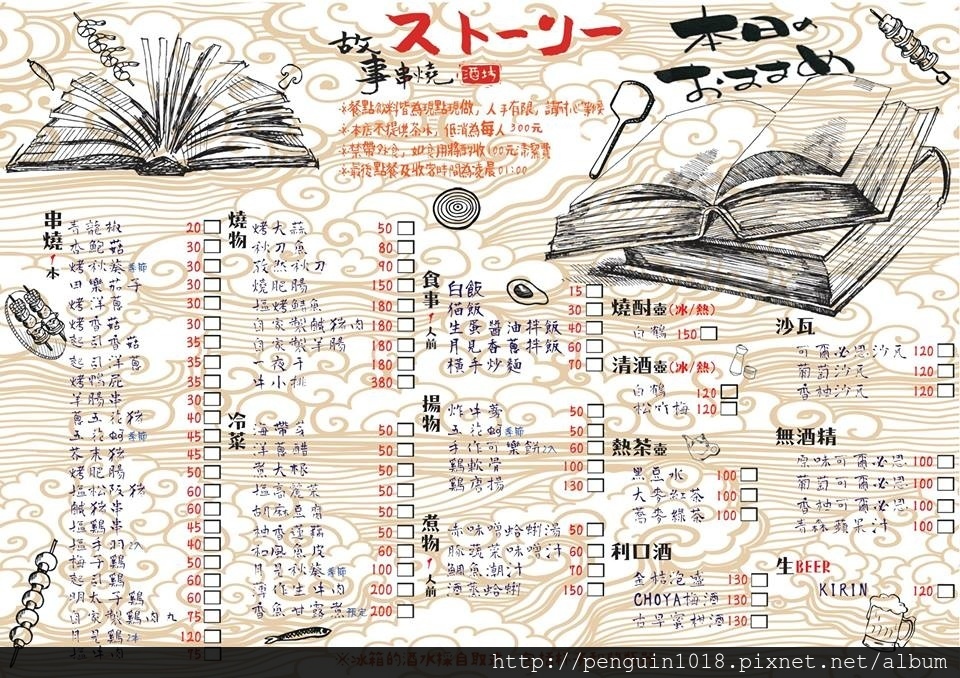 故事串燒 酒場
ストーリー
本日のおすすめ
※餐點飲料皆為現點現做，人手有限，請耐心等候
※本店不提供茶水，低消為每人300元
※禁帶外食，如食用將酌收100元清潔費
※最後點餐及收客時間為凌晨01:00
串燒 1本
青龍椒 20
杏鮑菇 30
烤秋葵 季節 30
田樂茄子 30
烤洋蔥 30
烤香菇 30
起司香菇 35
起司洋蔥 35
烤鴨屁 35
羊腸串 30
蔥五花豬 40
五花蚵 季節 45
芥末豬 45
烤肥腸 45
塩松阪豬 60
鹹豬串 60
塩鷄串 45
塩手羽 2入 40
梅子鷄 50
起司鷄 50
明太子鷄 60
自家製鷄肉丸 75
月見鷄 2串 120
塩牛肉 75
燒物
烤大蒜 50
秋刀魚 80
90
燒肥腸 150
塩烤鯖魚 180
自家製鹹豬肉 180
自家製羊腸 180
一夜干 180
牛小排 380
冷菜
海帶芽 50
洋蔥醋 50
煮大根 50
塩高麗菜 50
胡麻豆腐 50
柚香蓮藕 50
和風魚皮 60
月見秋葵 季節 100
薄作生牛肉 200
香魚甘露煮 限定 200
食事 1人前
白飯 15
貓飯 30
生蛋醬油拌飯 40
月見香蔥拌飯 60
橫手炒麵 70
揚物
炸牛蒡 50
五花蚵 季節 50
手作可樂餅 2入 60
鷄軟骨 100
鷄唐揚 130
煮物 1人前
赤味噌蛤蜊湯 50
豚蔬菜味噌汁 60
鯛魚潮汁 70
酒蒸蛤蜊 150
燒酎 壺(冰/熱)
白鶴 150
清酒 壺(冰/熱)
白鶴 120
松竹梅 120
熱茶 壺
黑豆水 100
大麥紅茶 100
蕎麥綠茶 100
利口酒
金桔泡盛 130
CHOYA梅酒 130
古早蜜柑酒 130
沙瓦
可爾必思沙瓦 120
葡萄沙瓦 120
香柚沙瓦 120
無酒精
原味可爾必思 100
葡萄可爾必思 100
香柚可爾必思 100
青森蘋果汁 100
生BEER
KIRIN 120
※冰箱的酒水採自取
http://penguin1018.pixnet.net/album